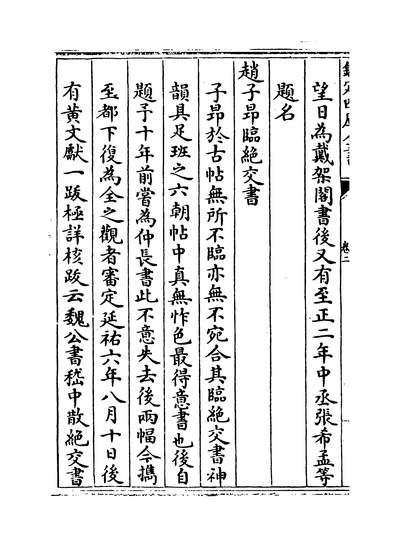 欽定四庫全書
卷二
望日為戴架閣書後又有至正二年中丞張希孟等
題名
趙子昻臨絶交書
子昻於古帖無所不臨亦無不宛合其臨絶交書神
韻具足班之六朝帖中真無怍色最得意書也後自
題予十年前嘗為仲長書此不意失去後兩幅今携
至都下復為全之觀者審定延祐六年八月十日後
有黄文獻一跋極詳核跋云魏公書嵇中散絶交書